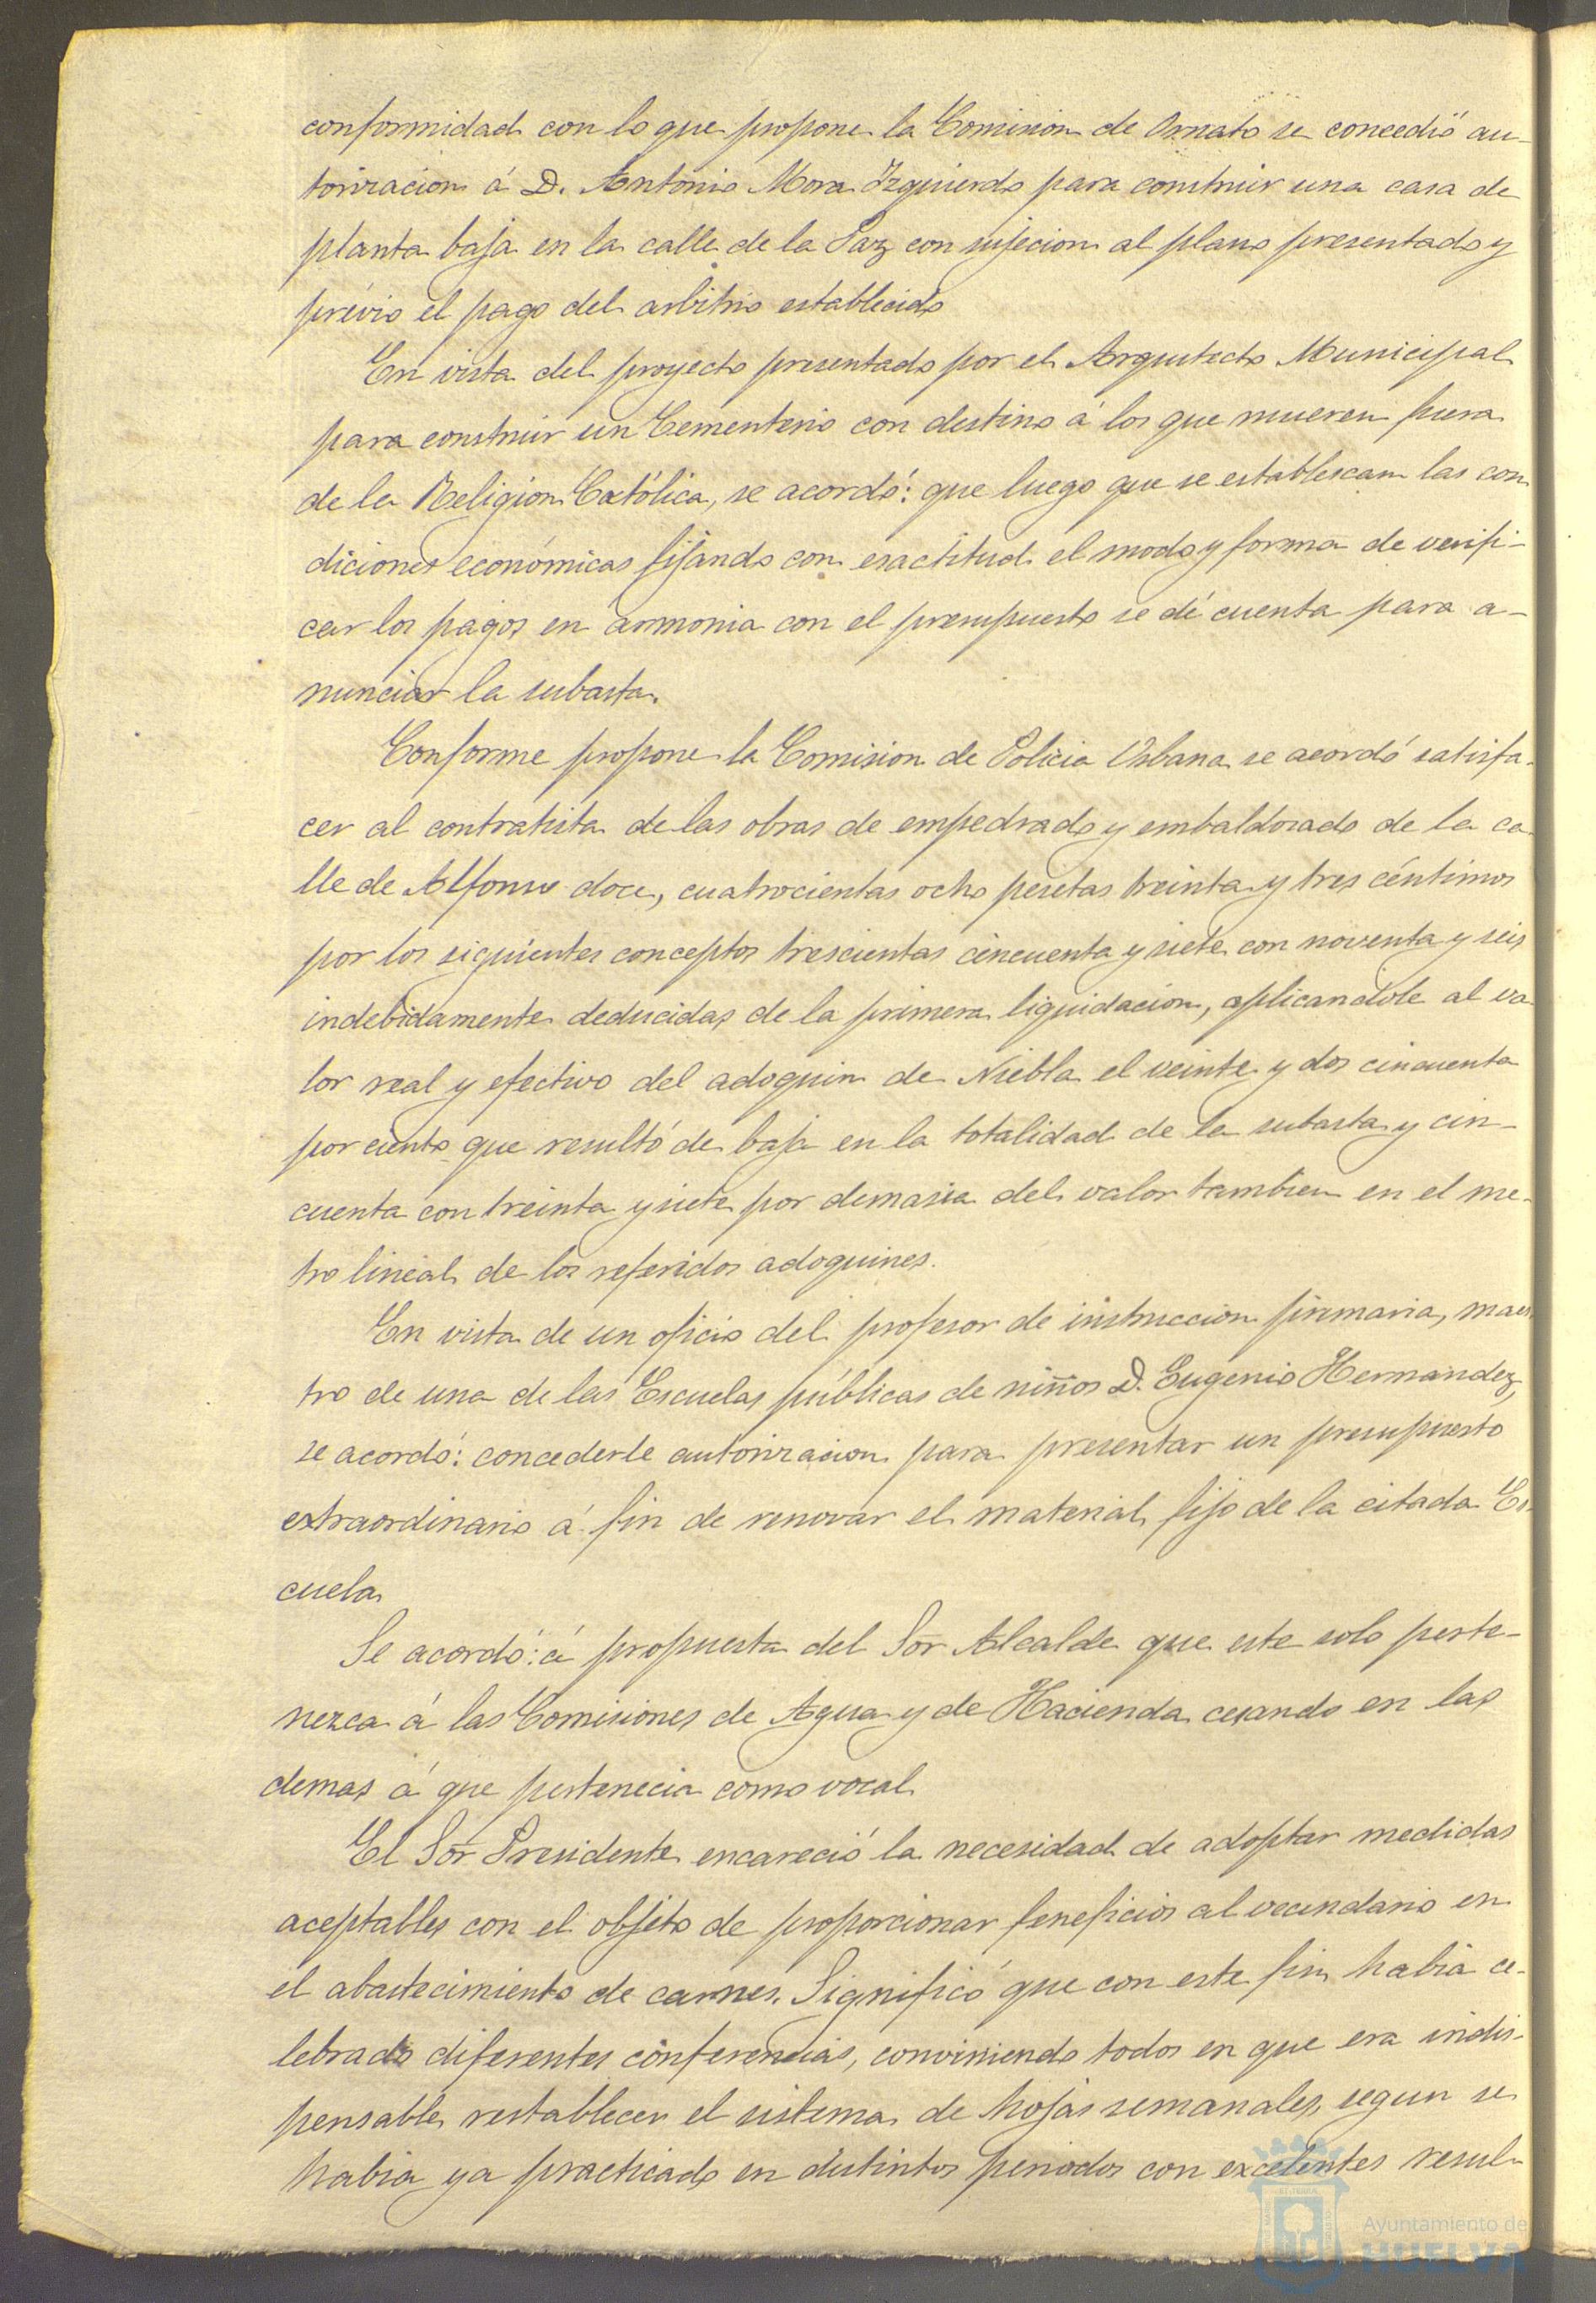 conformidad con lo que propone la Comision de Ornato se concedió au-
torizacion á D. Antonio Mora Izquierdo para construir una casa de
planta baja en la calle de la Paz con sujecion al plano presentado y
prévio el pago del arbitrio establecido
En vista del proyecto presentado por el Arquitecto Municipal
para construir un Cementerio con destino á los que mueren fuera
de la Religion Católica, se acordó: que luego que se establezcan las con
diciones económicas fijando con esactitud el modo y forma de verifi-
car los pagos en armonia con el presupuesto se dé cuenta para a-
nunciar la subasta.
Conforme propone la Comision de Policia Urbana se acordó satisfa-
cer al contratista de las obras de empedrado y embaldosado de la ca-
lle de Alfonso doce, cuatrocientas ocho pesetas treinta y tres céntimos
por los siguientes conceptos trescientas cincuenta y siete con noventa y seis
indebidamente deducidas de la primera liquidacion, aplicandole al va
lor real y efectivo del adoquin de Niebla el veinte y dos cincuenta
por ciento que resultó de baja en la totalidad de la subasta y cin-
cuenta con treinta y siete por demasia del valor tambien en el me-
tro lineal de los referidos adoquines.
En vista de un oficio del profesor de instruccion primaria, maes
tro de una de las Escuelas públicas de niños D. Eugenio Hernandez,
se acordó: concederle autorizacion para presentar un presupuesto
extraordinario á fin de renovar el material fijo de la citada Es-
cuela
Se acordó: á propuesta del Sor Alcalde que este solo perte-
nezca á las Comisiones de Agua y de Hacienda cesando en las
demas á que pertenecia como vocal
El Sor Presidente encareció la necesidad de adoptar medidas
aceptables con el objeto de proporcionar beneficios al vecindario en
el abastecimiento de carnes. Significó que con este fin habia ce-
lebrado diferentes conferencias, conviniendo todos en que era indis-
pensable restablecer el sistema de hojas semanales, segun se
habia ya practicado en distintos periodos con excelentes resul-
Ayuntamiento de
HUELVA